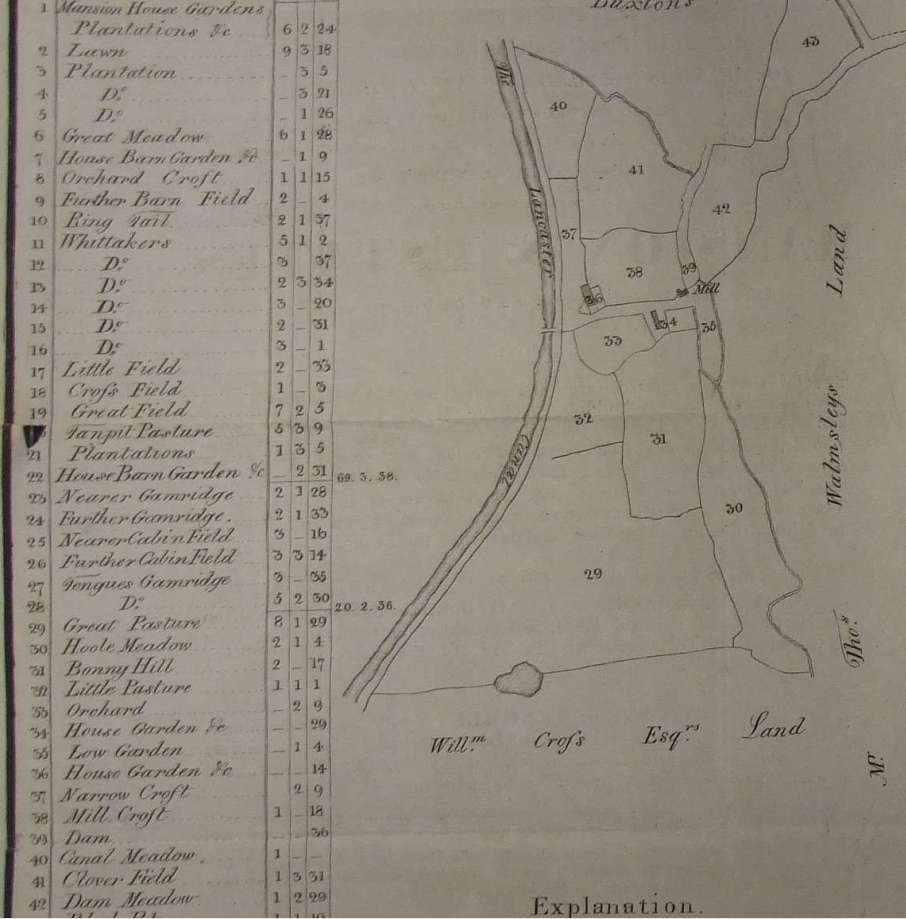 1 Mansion House Gardens
Plantations &c 6 2 24
2 Lawn 9 3 18
3 Plantation _ 3 5
4 D.o _ 3 21
5 D.o _ 1 26
6 Great Meadow 6 1 28
7 House Barn Garden &c _ 1 9
8 Orchard Croft 1 1 15
9 Further Barn Field 2 _ 4
10 Ring Tail 2 1 37
11 Whittakers 5 1 2
12 D.o 3 37
13 D.o 2 3 34
14 D.o 3 _ 20
15 D.o 2 _ 31
16 D.o 3 _ 1
17 Little Field 2 _ 33
18 Croſs Field 1 _ 3
19 Great Field 7 2 5
Tanpit Pasture 5 3 9
21 Plantations 1 3 5
22 House Barn Garden &c _ 2 31 69. 3. 38.
23 Nearer Gamridge 2 1 28
24 Further Gamridge. 2 1 33
25 Nearer Cabin Field 3 _ 16
26 Further Cabin Field 3 3 14
27 Tongues Gamridge 3 _ 35
28 D.o 5 2 30 20. 2. 36.
29 Great Pasture 8 1 29
30 Hoole Meadow 2 1 4
31 Bonny Hill 2 _ 17
32 Little Pasture 1 1 1
33 Orchard _ 2 9
34 House Garden &c _ _ 29
35 Low Garden _ 1 4
36 House Garden &c _ _ 14
37 Narrow Croft 2 9
38 Mill Croft 1 _ 18
39 Dam _ _ 36
40 Canal Meadow. 1 _ _
41 Clover Field 1 3 31
42 Dam Meadow 1 2 29
Buxtons
43
The Lancaster Canal
40
41
42
37
38
39
36
Mill
34
35
33
32
31
30
29
Mr. Tho.s Walmsleys Land
Will.m Croſs Esq.rs Land
Explanation.